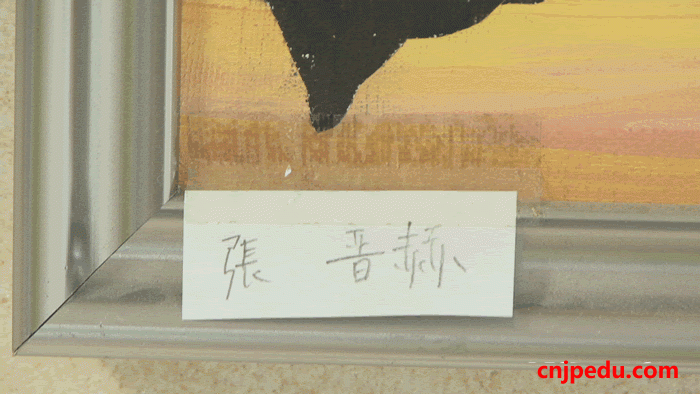 張 晋赫
cnjpedu.com